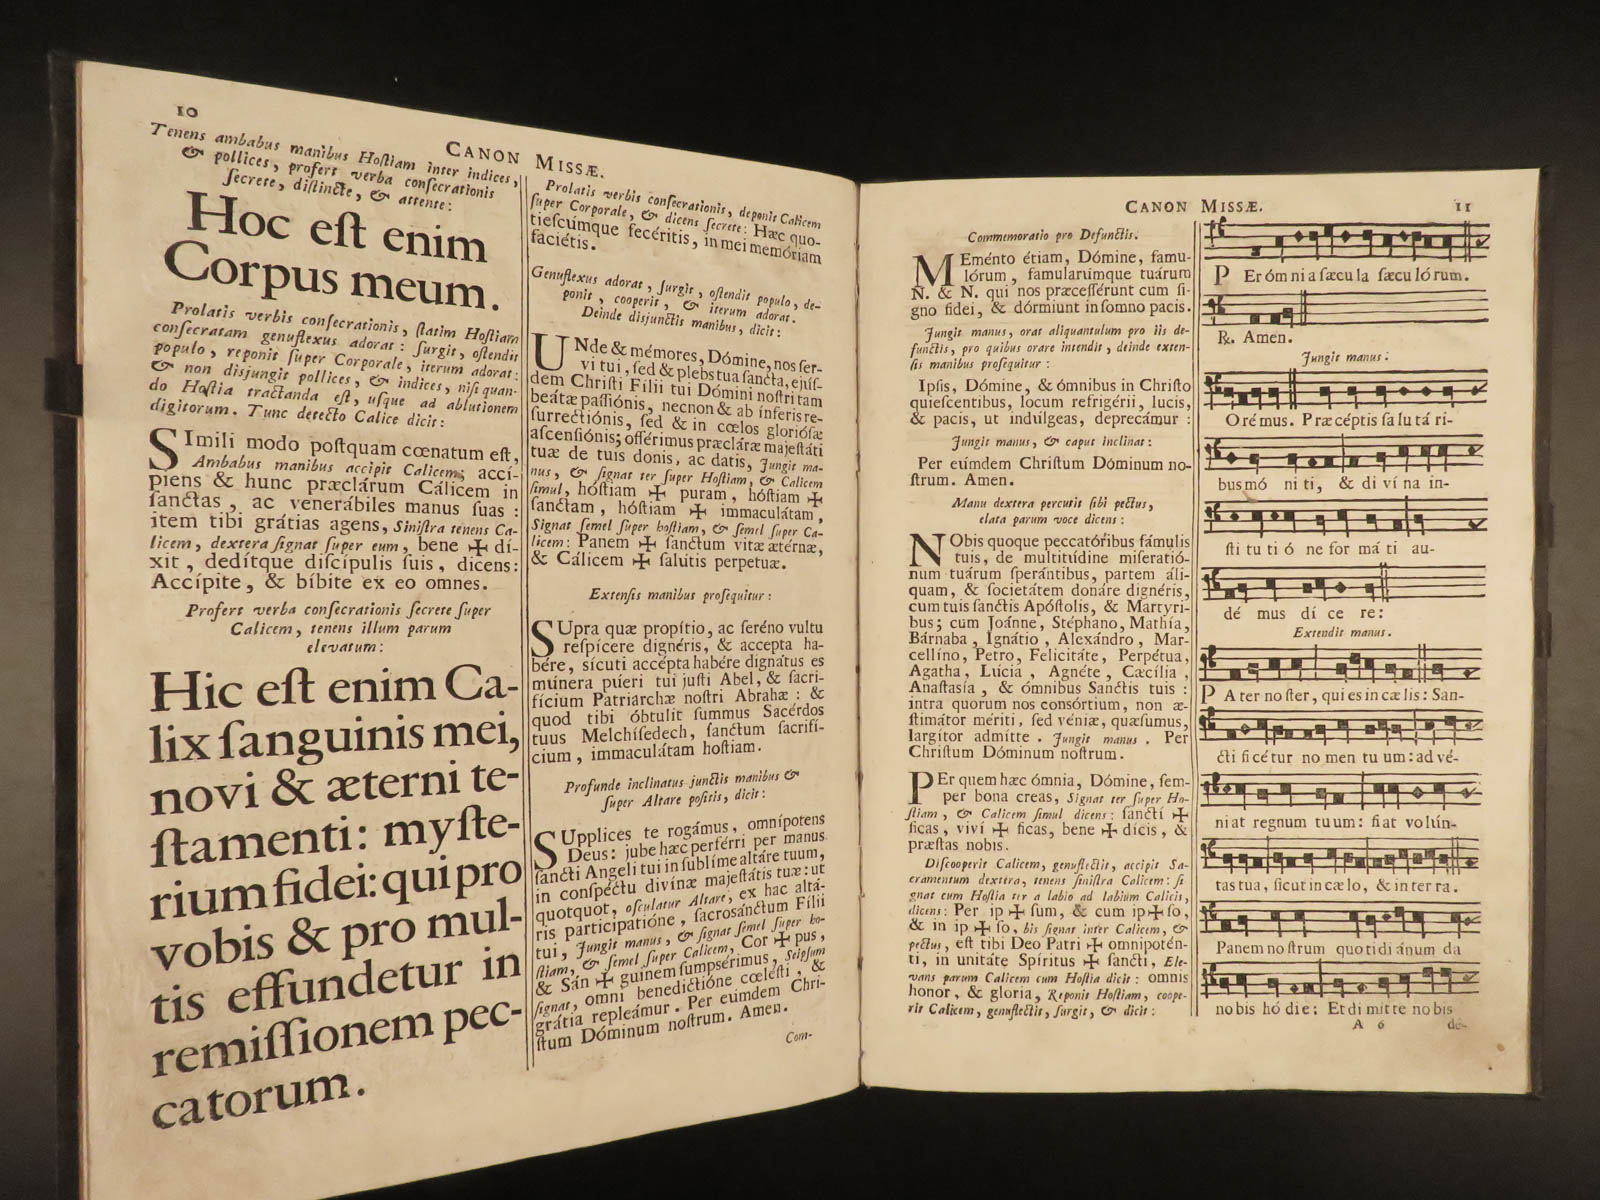 10
CANON MISSÆ.
Tenens ambabus manibus Hoſtiam inter indices,
& pollices, profert verba conſecrationis
ſecrete, diſtincte, & attente:
Hoc eſt enim
Corpus meum.
Prolatis verbis conſecrationis, ſtatim Hoſtiam
conſecratam genuflexus adorat: ſurgit, oſtendit
populo, reponit ſuper Corporale, iterum adorat:
& non disjungit pollices, & indices, niſi quan-
do Hoſtia tractanda eſt, uſque ad ablutionem
digitorum. Tunc detecto Calice dicit:
SImili modo poſtquam cœnatum eſt,
Ambabus manibus accipit Calicem; accí-
piens & hunc præclárum Cálicem in
ſanctas, ac venerábiles manus ſuas:
item tibi grátias agens, Siniſtra tenens Ca-
licem, dextera ſignat ſuper eum, bene ✠ dí-
xit, dedítque diſcípulis ſuis, dicens:
Accípite, & bíbite ex eo omnes.
Profert verba conſecrationis ſecrete ſuper
Calicem, tenens illum parum
elevatum:
Hic eſt enim Ca-
lix ſanguinis mei,
novi & æterni te-
ſtamenti: myſte-
rium fidei: qui pro
vobis & pro mul-
tis effundetur in
remiſſionem pec-
catorum.
Prolatis verbis conſecrationis, deponit Calicem
ſuper Corporale, & dicens ſecrete: Hæc quo-
tieſcúmque fecéritis, in mei memóriam
faciétis.
Genuflexus adorat, ſurgit, oſtendit populo, de-
ponit, cooperit, & iterum adorat.
Deinde disjunctis manibus, dicit:
UNde & mémores, Dómine, nos ſer-
vi tui, ſed & plebs tua ſancta, ejúſ-
dem Chriſti Fílii tui Dómini noſtri tam
beátæ paſſiónis, necnon & ab ínferis re-
ſurrectiónis, ſed & in cœlos glorióſæ
aſcenſiónis; offérimus præcláræ majeſtáti
tuæ de tuis donis, ac datis, Jungit ma-
nus, & ſignat ter ſuper Hoſtiam, & Calicem
ſimul, hóſtiam ✠ puram, hóſtiam ✠
ſanctam, hóſtiam ✠ immaculátam,
Signat ſemel ſuper hoſtiam, & ſemel ſuper Ca-
licem: Panem ✠ ſanctum vitæ ætérnæ,
& Cálicem ✠ ſalútis perpetuæ.
Extenſis manibus proſequitur:
SUpra quæ propítio, ac ſeréno vultu
reſpícere dignéris, & accepta ha-
bére, sícuti accépta habére dignátus es
múnera púeri tui juſti Abel, & ſacri-
fícium Patriarchæ noſtri Abrahæ: &
quod tibi óbtulit ſummus Sacérdos
tuus Melchíſedech, ſanctum ſacrifí-
cium, immaculátam hoſtiam.
Profunde inclinatus junctis manibus &
ſuper Altare poſitis, dicit:
SUpplices te rogámus, omnípotens
Deus: jube hæc perférri per manus
ſancti Angeli tui in ſublíme altáre tuum,
in conſpéctu divínæ majeſtátis tuæ: ut
quotquot, oſculatur Altare, ex hac altá-
ris participatióne, ſacroſánctum Fílii
tui, Jungit manus, & ſignat ſemel ſuper ho-
ſtiam, & ſemel ſuper Calicem, Cor ✠ pus,
& Sán ✠ guinem ſumpsérimus, Seipſum
ſignat, omni benedictióne cœléſti, &
grátia repleámur. Per eúmdem Chri-
ſtum Dóminum noſtrum. Amen.
Com-
CANON MISSÆ.
11
Commemoratio pro Defunctis.
MEménto étiam, Dómine, famu-
lórum, famularúmque tuárum
N. & N. qui nos præceſſérunt cum ſi-
gno fidei, & dórmiunt in ſomno pacis.
Jungit manus, orat aliquantulum pro iis de-
functis, pro quibus orare intendit, deinde exten-
ſis manibus proſequitur:
Ipſis, Dómine, & ómnibus in Chriſto
quieſcentibus, locum refrigérii, lucis,
& pacis, ut indúlgeas, deprecámur:
Jungit manus, & caput inclinat:
Per eúmdem Chriſtum Dóminum no-
ſtrum. Amen.
Manu dextera percutit ſibi pectus,
elata parum voce dicens:
NObis quoque peccatóribus fámulis
tuis, de multitúdine miſeratió-
num tuárum ſperántibus, partem áli-
quam, & ſocietátem donáre dignéris,
cum tuis ſanctis Apóſtolis, & Martyri-
bus; cum Joánne, Stéphano, Mathía,
Bárnaba, Ignátio, Alexándro, Mar-
cellíno, Petro, Felicitáte, Perpétua,
Agatha, Lúcia, Agnéte, Cæcília,
Anaſtasía, & ómnibus Sanctis tuis:
intra quorum nos conſórtium, non æ-
ſtimátor mériti, ſed véniæ, quæſumus,
largítor admítte. Jungit manus. Per
Chriſtum Dóminum noſtrum.
PEr quem hæc ómnia, Dómine, ſem-
per bona creas, Signat ter ſuper Ho-
ſtiam, & Calicem ſimul dicens: ſanctí ✠
ficas, viví ✠ ficas, bene ✠ dícis, &
præſtas nobis.
Diſcooperit Calicem, genuflectit, accipit Sa-
cramentum dextera, tenens ſiniſtra Calicem: ſi-
gnat cum Hoſtia ter a labio ad labium Calicis,
dicens: Per ip ✠ ſum, & cum ip ✠ ſo,
& in ip ✠ ſo, bis ſignat inter Calicem, &
pectus, eſt tibi Deo Patri ✠ omnipotén-
ti, in unitáte Spíritus ✠ ſancti, Ele-
vans parum Calicem cum Hoſtia dicit: omnis
honor, & gloria, Reponit Hoſtiam, coope-
rit Calicem, genuflectit, ſurgit, & dicit:
PEr óm ni a ſæcu la ſæcu ló rum.
℟. Amen.
Jungit manus:
Oré mus. Præcéptis ſa lu tá ri-
bus mó ni ti, & di ví na in-
ſti tu ti ó ne for má ti au-
dé mus dí ce re:
Extendit manus.
PAter no ſter, qui es in cæ lis: San-
cti fi cé tur no men tu um: ad vé-
niat regnum tuum: fiat volún-
tas tua, ſicut in cæ lo, & in ter ra.
Panem no ſtrum quo ti di ánum da
no bis hó die: Et di mit te no bis
A 6
dé-